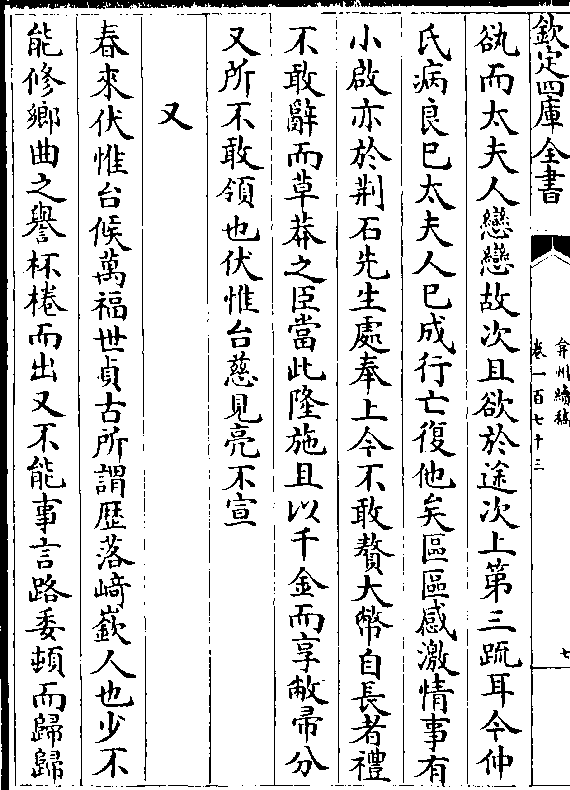 欽定四庫全書
弇州續稿
卷一百七十三
七
欲而太夫人戀戀故次且欲於途次上第三疏耳今仲
氏病良已太夫人已成行亡復他矣區區感激情事有
小啟亦於荆石先生處奉上今不敢贅大幣自長者禮
不敢辭而草莽之臣當此隆施且以千金而享敝帚分
又所不敢領也伏惟台慈見亮不宣
又
春來伏惟台候萬福世貞古所謂歴落﨑嶔人也少不
能修鄉曲之譽杯棬而出又不能事言路委頓而歸歸